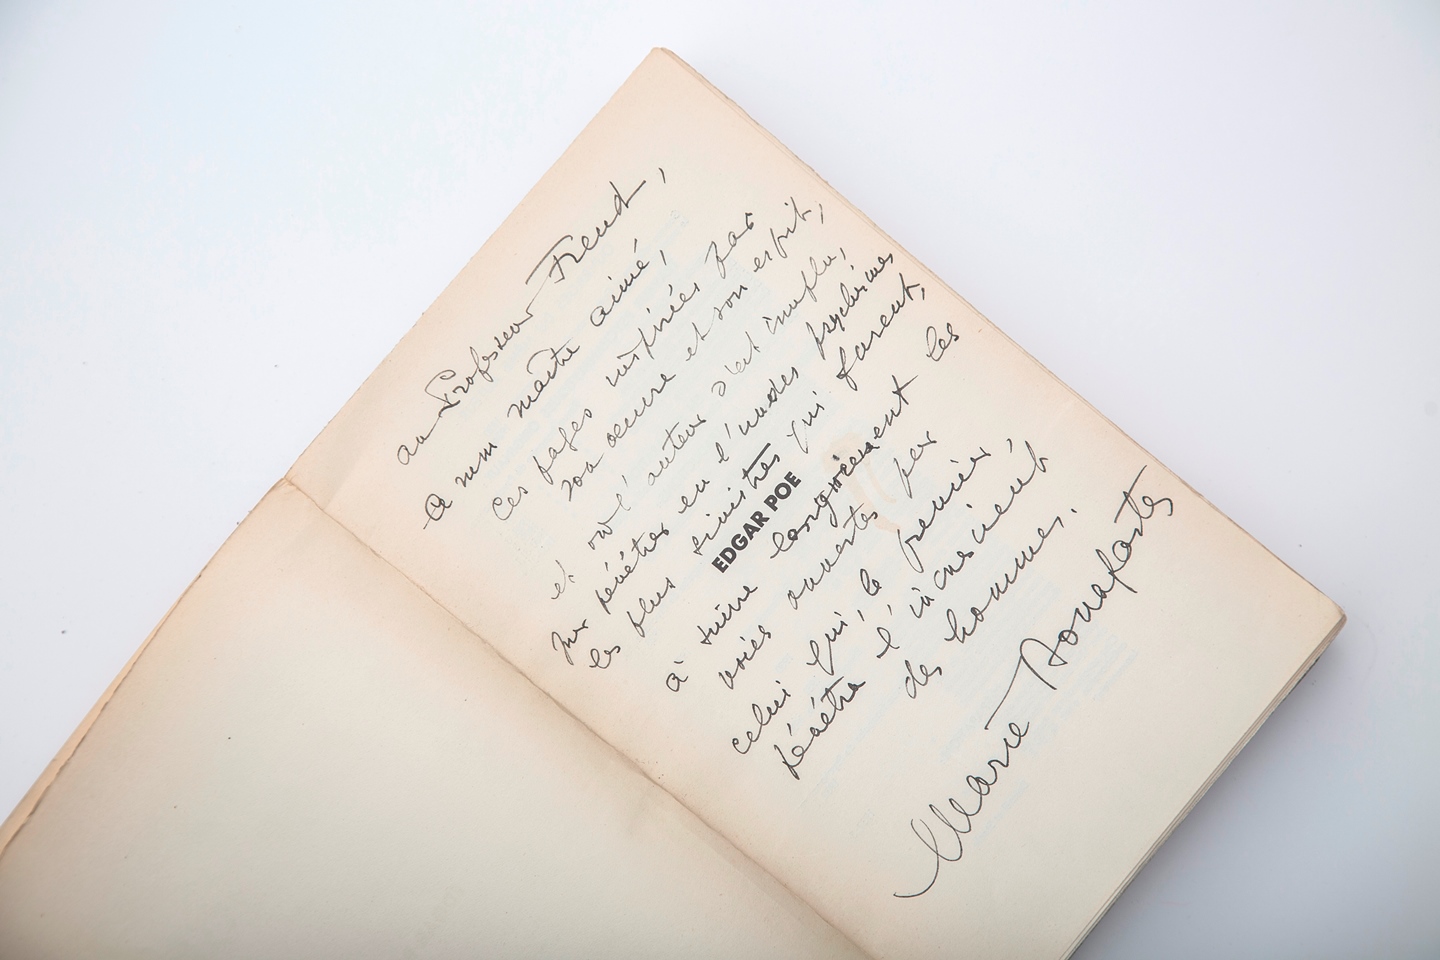 au Professeur Freud,
à mon maître aimé,
ces pages inspirées par
son œuvre et son esprit,
et où l'auteur s'est complu,
pénétrer en l'un des psychismes
les plus sinistres qui furent,
EDGAR POE
à suivre longuement les
voies ouvertes par
celui qui, le premier
pénétra l'inconscient
des hommes.
Marie Bonaparte